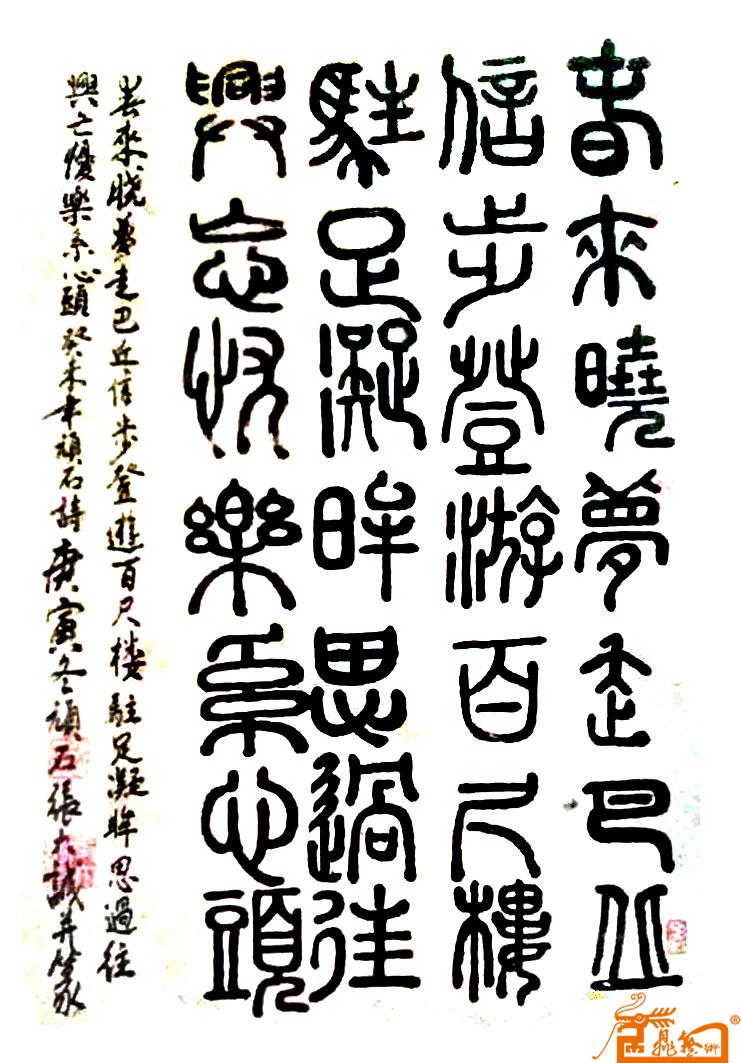 春來曉夢走巴丘
信步登游百尺樓
駐足凝眸思過往
興亡忧樂系心頭
春來晓夢走巴丘信步登遊百尺楼駐足凝眸思過往
興亡懮樂系心頭癸未年頑石詩庚寅冬頑石張大誠并篆